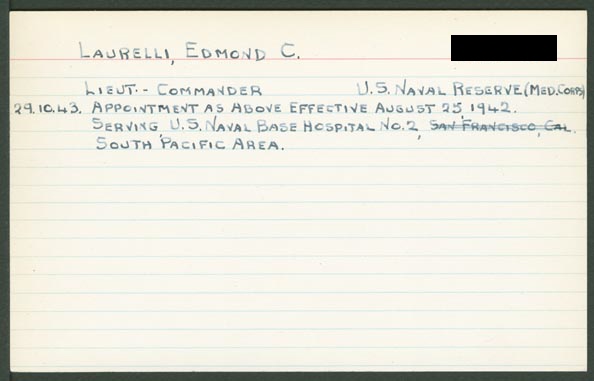 LAURELLI, EDMOND C.
LIEUT.- COMMANDER U.S. NAVAL RESERVE (MED. CORPS)
29.10.43. APPOINTMENT AS ABOVE EFFECTIVE AUGUST 25, 1942.
SERVING U.S. NAVAL BASE HOSPITAL NO. 2, SAN FRANCISCO, CAL.
SOUTH PACIFIC AREA.